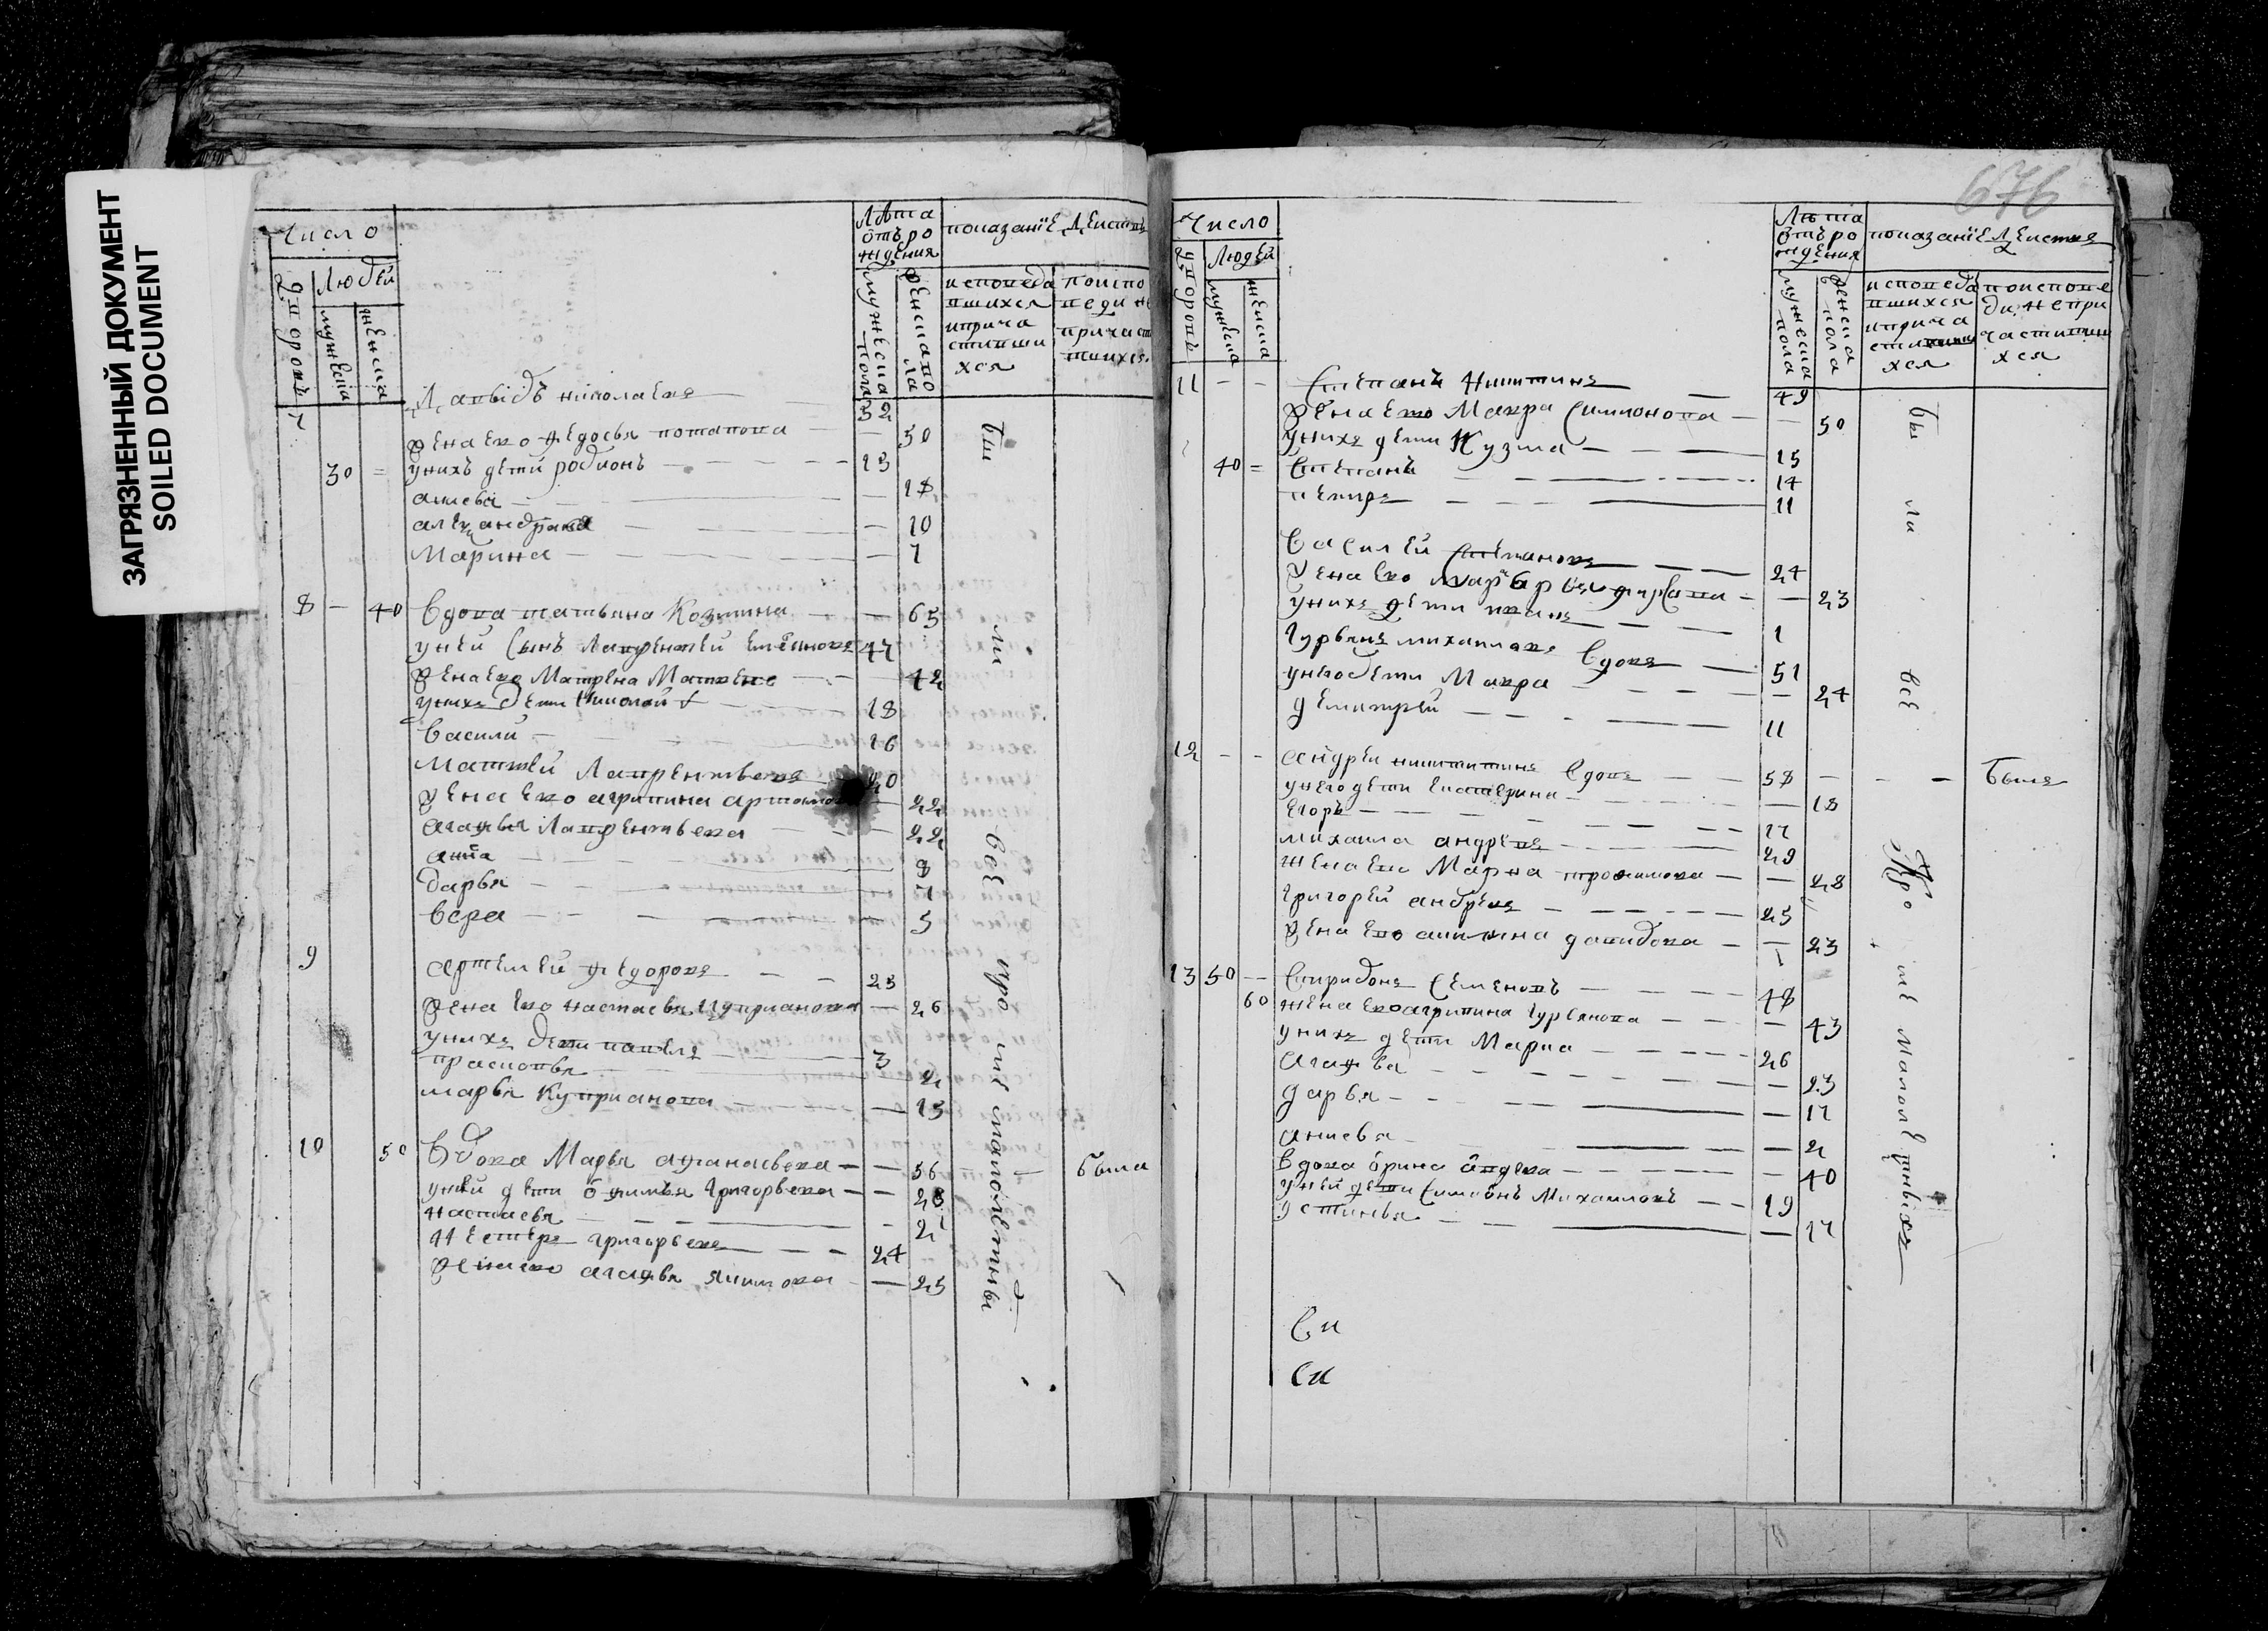 ЗАГРЯЗНЕННЫЙ ДОКУМЕНТ
SOILED DOCUMENT
Число
Лѣта
отъ ро
ждения
показанїе действъ
дворовъ
Людей
мужеска
женска
мужеска пола
женска пола
исповеда
вшихся
и прича
стивши
хся
по испо
веди не
причаст
ившихся
7
Давыдъ николаевъ 52
жена ево федосья потапова 50
30 у нихъ дети родионъ 13
анисья 18
александра 10
Марина 7
8 40 вдова татьяна Козмина 65
у ней сынъ Лаврентей 47
жена ево Матрена Матвеева 42
у нихъ дети Николай 18
василий 16
Матвей Лаврентьевъ 20
жена ево агрипина 22
агафья Лаврентьева 22
анна 8
дарья 7
вера 5
9 артемей федоровъ 25
жена ево настасья куприанова 26
у нихъ дети павелъ 3
прасковья 2
марья Куприанова 15
10 50 Вдова Марья афанасьева 56 была
у ней дети Григорьева 28
настасья 21
Нестеръ григорьевъ 24
жена ево агафья якимова 25
бы
ли
все
кро
ме малолетны
676
Число
Лѣта
отъ ро
ждения
показанїе действъ
дворовъ
Людей
мужеска
женска
мужеска пола
женска пола
исповеда
вшихся
и прича
стивши
хся
по испове
ди не при
частивши
хся
11 Степанъ Никитинъ 49
жена ево Мавра Симионова 50
у нихъ дети Кузма 15
40 Степанъ 14
петръ 11
Василей Степановъ 24
жена ево 23
у нихъ дети иванъ 1
гурьянъ михаиловъ вдовъ 51
у него дети Мавра 24
демитрей 11
12 андреи никитинъ вдовъ 58 былъ
у него дети екатерина 18
егоръ 17
михаила андреевъ 29
жена ево Марфа трофимова 28
григорей андреевъ 25
жена ево акилина давидова 23
13 50 Спиридонъ Семеновъ 48
60 жена ево агрипина гурьянова 43
у нихъ дети Марка 26
агафья 23
дарья 17
анисья 2
вдова орина 40
у ней дети Симионъ Михаиловъ 19
устинья 17
бы
ли
все
Кро
ме малолетныхъ
Си
Си